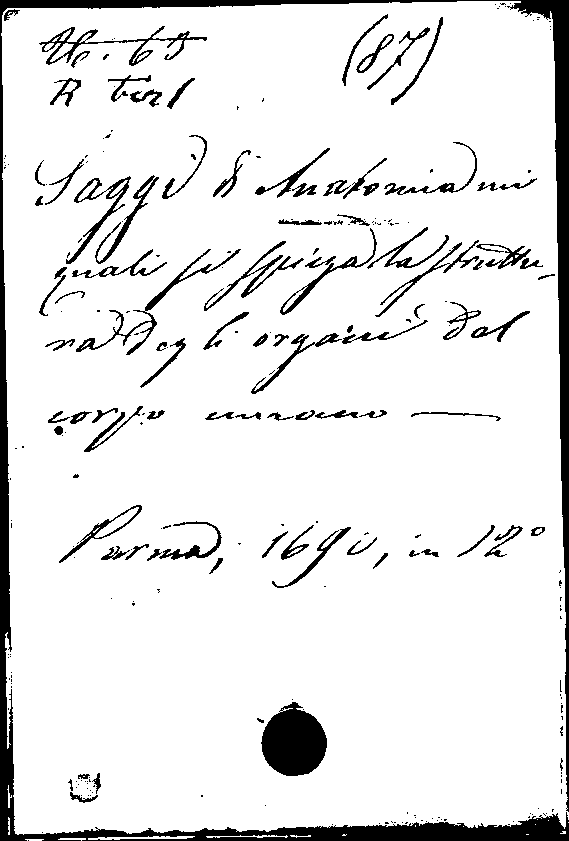 (87)
Saggi di Anatomia nei
quali si spiega la struttu-
ra degli organi del
corpo umano —
Parma, 1690, in 12°